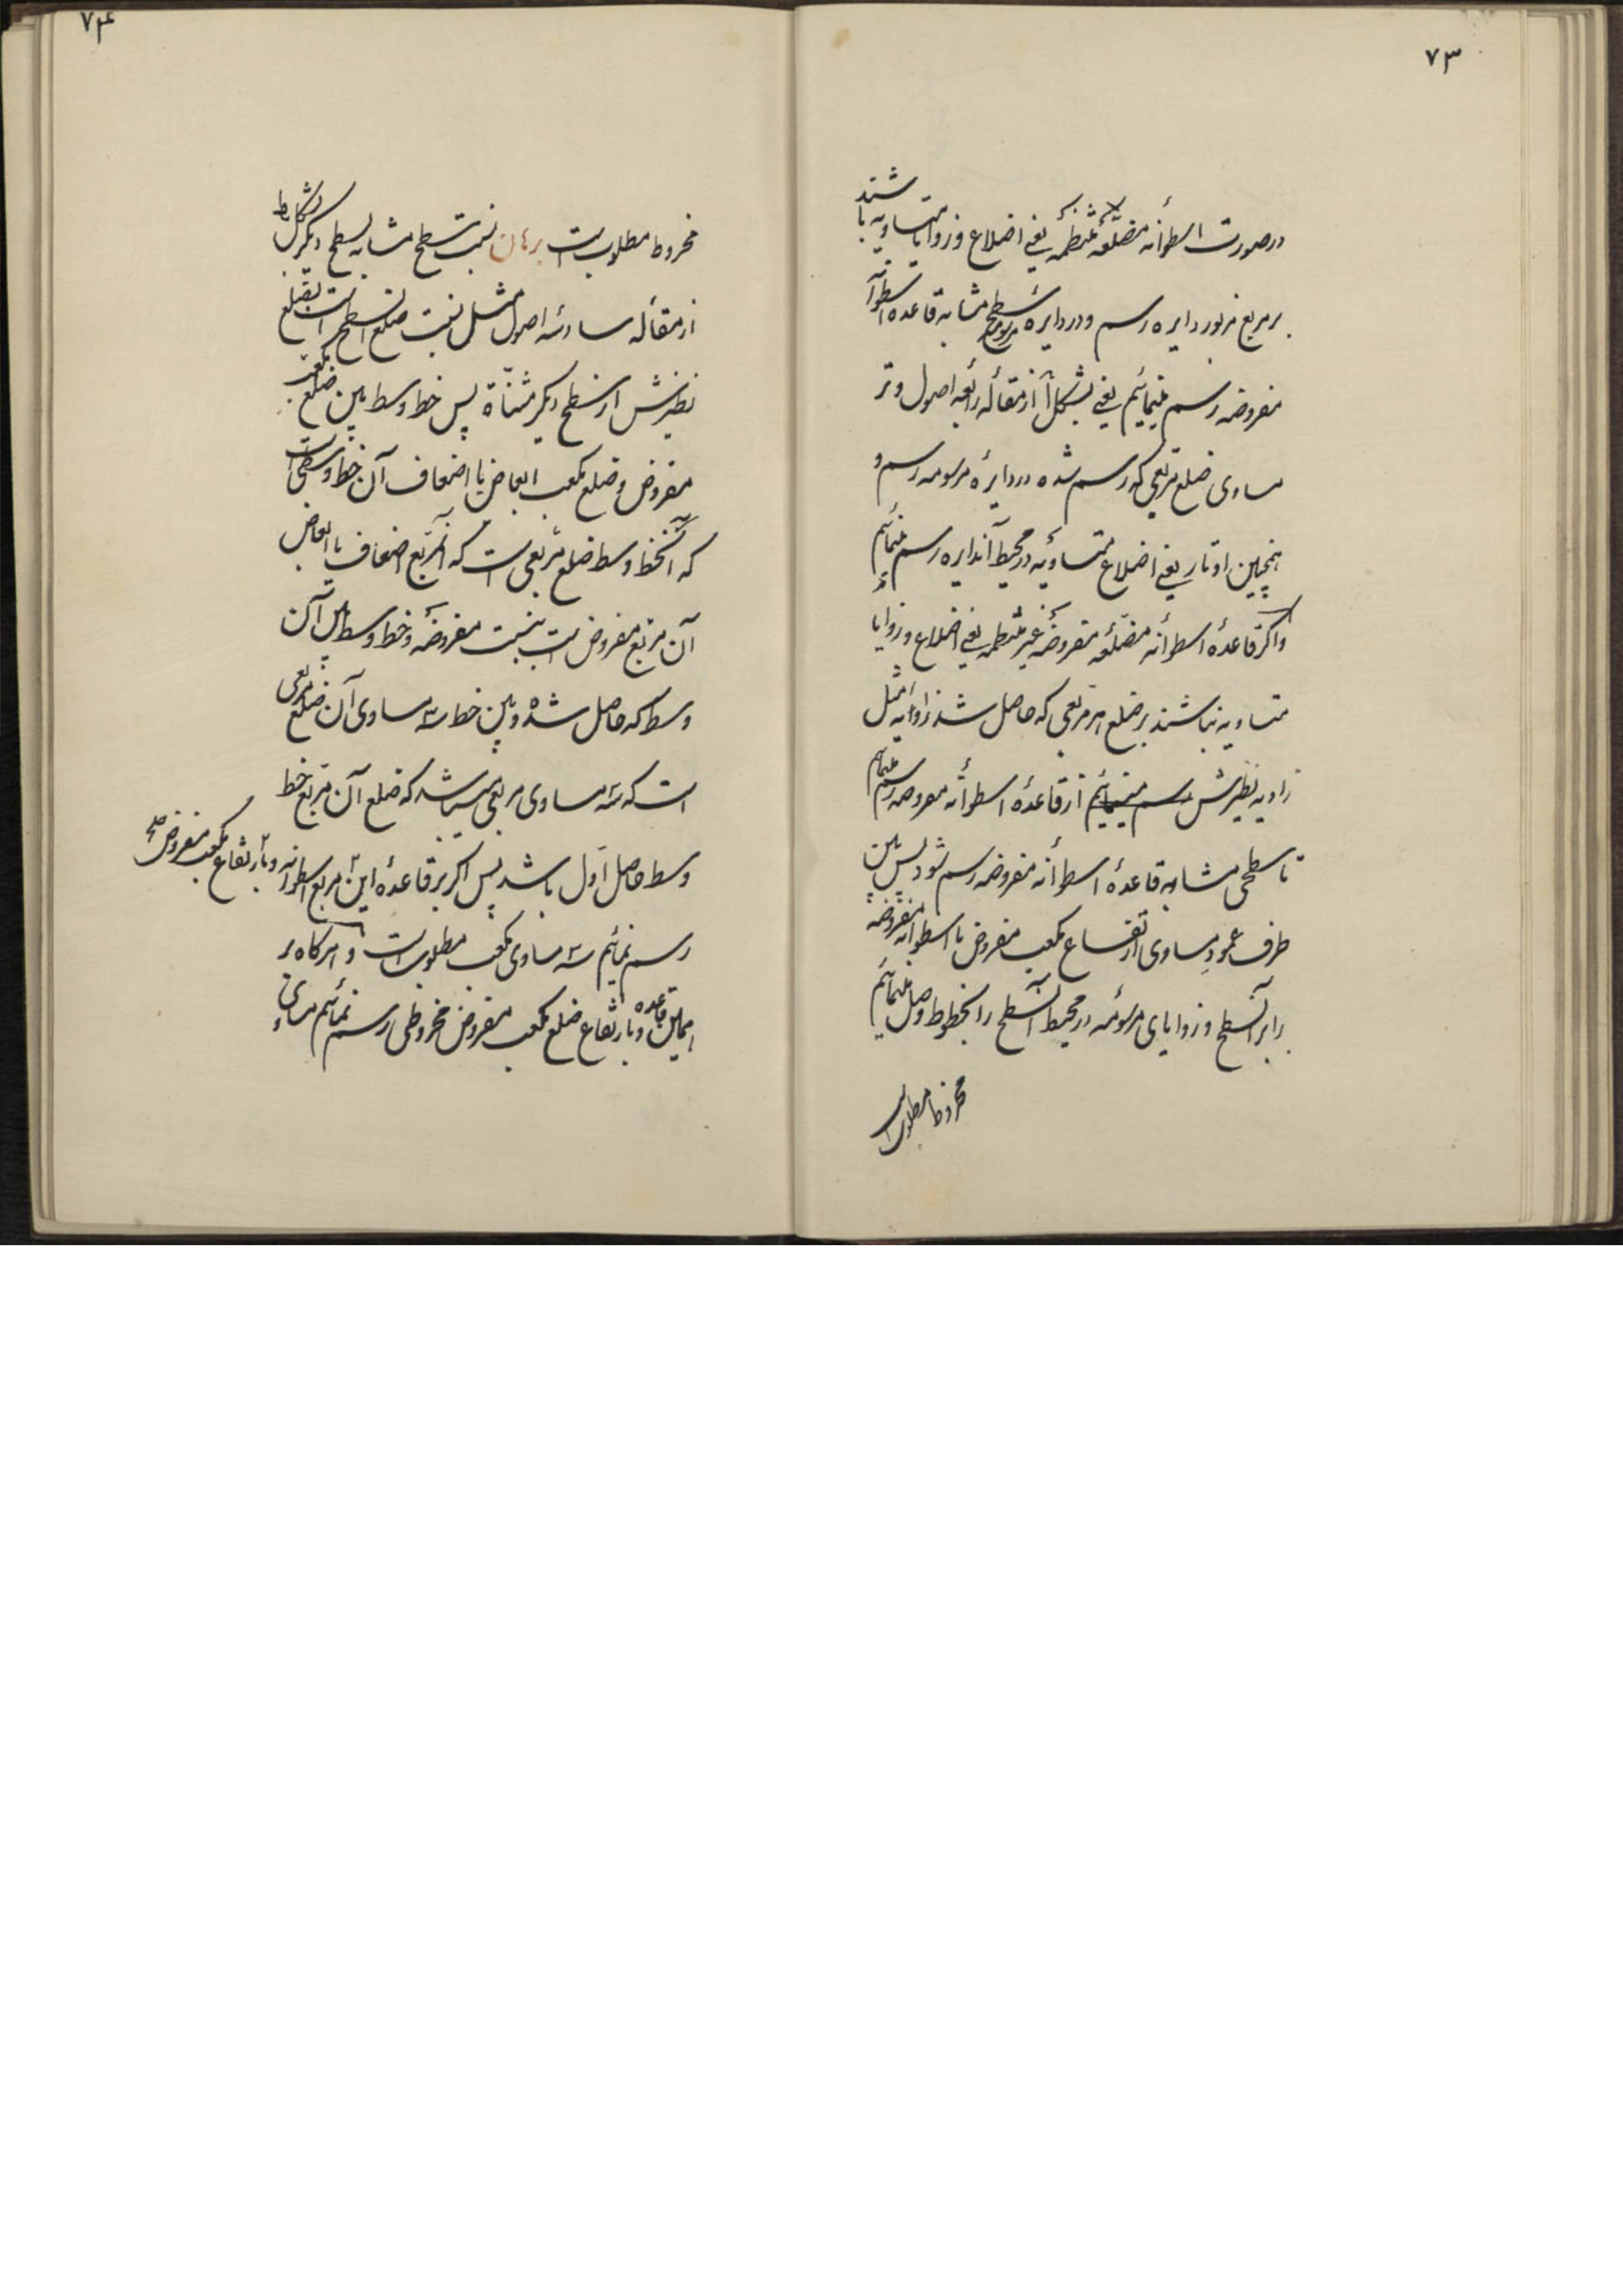 ۷۳
در صورت اسطوانه مضلعه منتظمه یعنی اضلاع و زوایا متساویه باشند
بر مربع مزبور دایره رسم و در دایره مرسومه سطح مشابه قاعده اسطوانه
مفروضه رسم مینمائیم یعنی بشکل آ از مقاله رابعه اصول وتر
مساوی ضلع مربعی که رسم شده در دایره مرسومه رسم و
همچنین اوتار یعنی اضلاع متساویه در محیط آندایره رسم مینمائیم
و اگر قاعدهٔ اسطوانه مضلعه مفروضه غیر منتظمه یعنی اضلاع و زوایا
متساویه نباشند بر ضلع هر مربعی که حاصل شد زاویه مثل
زاویه نظیرش رسم مینمائیم از قاعدهٔ اسطوانه مفروضه رسم مینمائیم
تا سطحی مشابه قاعدهٔ اسطوانه مفروضه رسم شود پس بین
طرف عمود مساوی ارتفاع مکعب مفروض یا اسطوانه مفروضه
را بر آنسطح و زوایای مرسومه در محیط آنسطح را بخطوط وصل مینمائیم
مخروط مطلوبست
۷۴
مخروط مطلوبست برهان نسبت سطح مشابه بسطح دیگر بشکل یط
از مقاله سادسه اصول مثل نسبت ضلع آنسطح است بضلع
نظیرش از سطح دیگر مثناة پس خط وسط بین ضلع مکعب
مفروض و ضلع مکعب ابعاض یا اضعاف آن خط وسطی است
که آنخط وسط ضلع مربعی است که آنمربع اضعاف یا ابعاض
آن مربع مفروض است بنسبت مفروضه و خط وسط بین آن
وسط که حاصل شده و بین خط سه مساوی آن ضلع مربعی
است که سه مساوی مربعی میباشد که ضلع آن مربع خط
وسط حاصل اول باشد پس اگر بر قاعدهٔ این مربع اسطوانه و بارتفاع مکعب مفروض صح
رسم نمائیم سه مساوی مکعب مطلوبست و هرگاه بر
همین قاعده و بارتفاع ضلع مکعب مفروض مخروطی رسم نمائیم مساوی